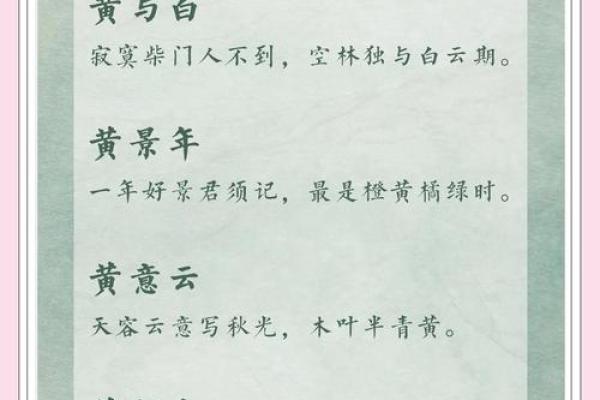 黄与白
寂寞柴门人不到，空林独与白云期。
黄景年
一年好景君须记，最是橙黄橘绿时。
黄意云
天容云意写秋光，木叶半青黄。